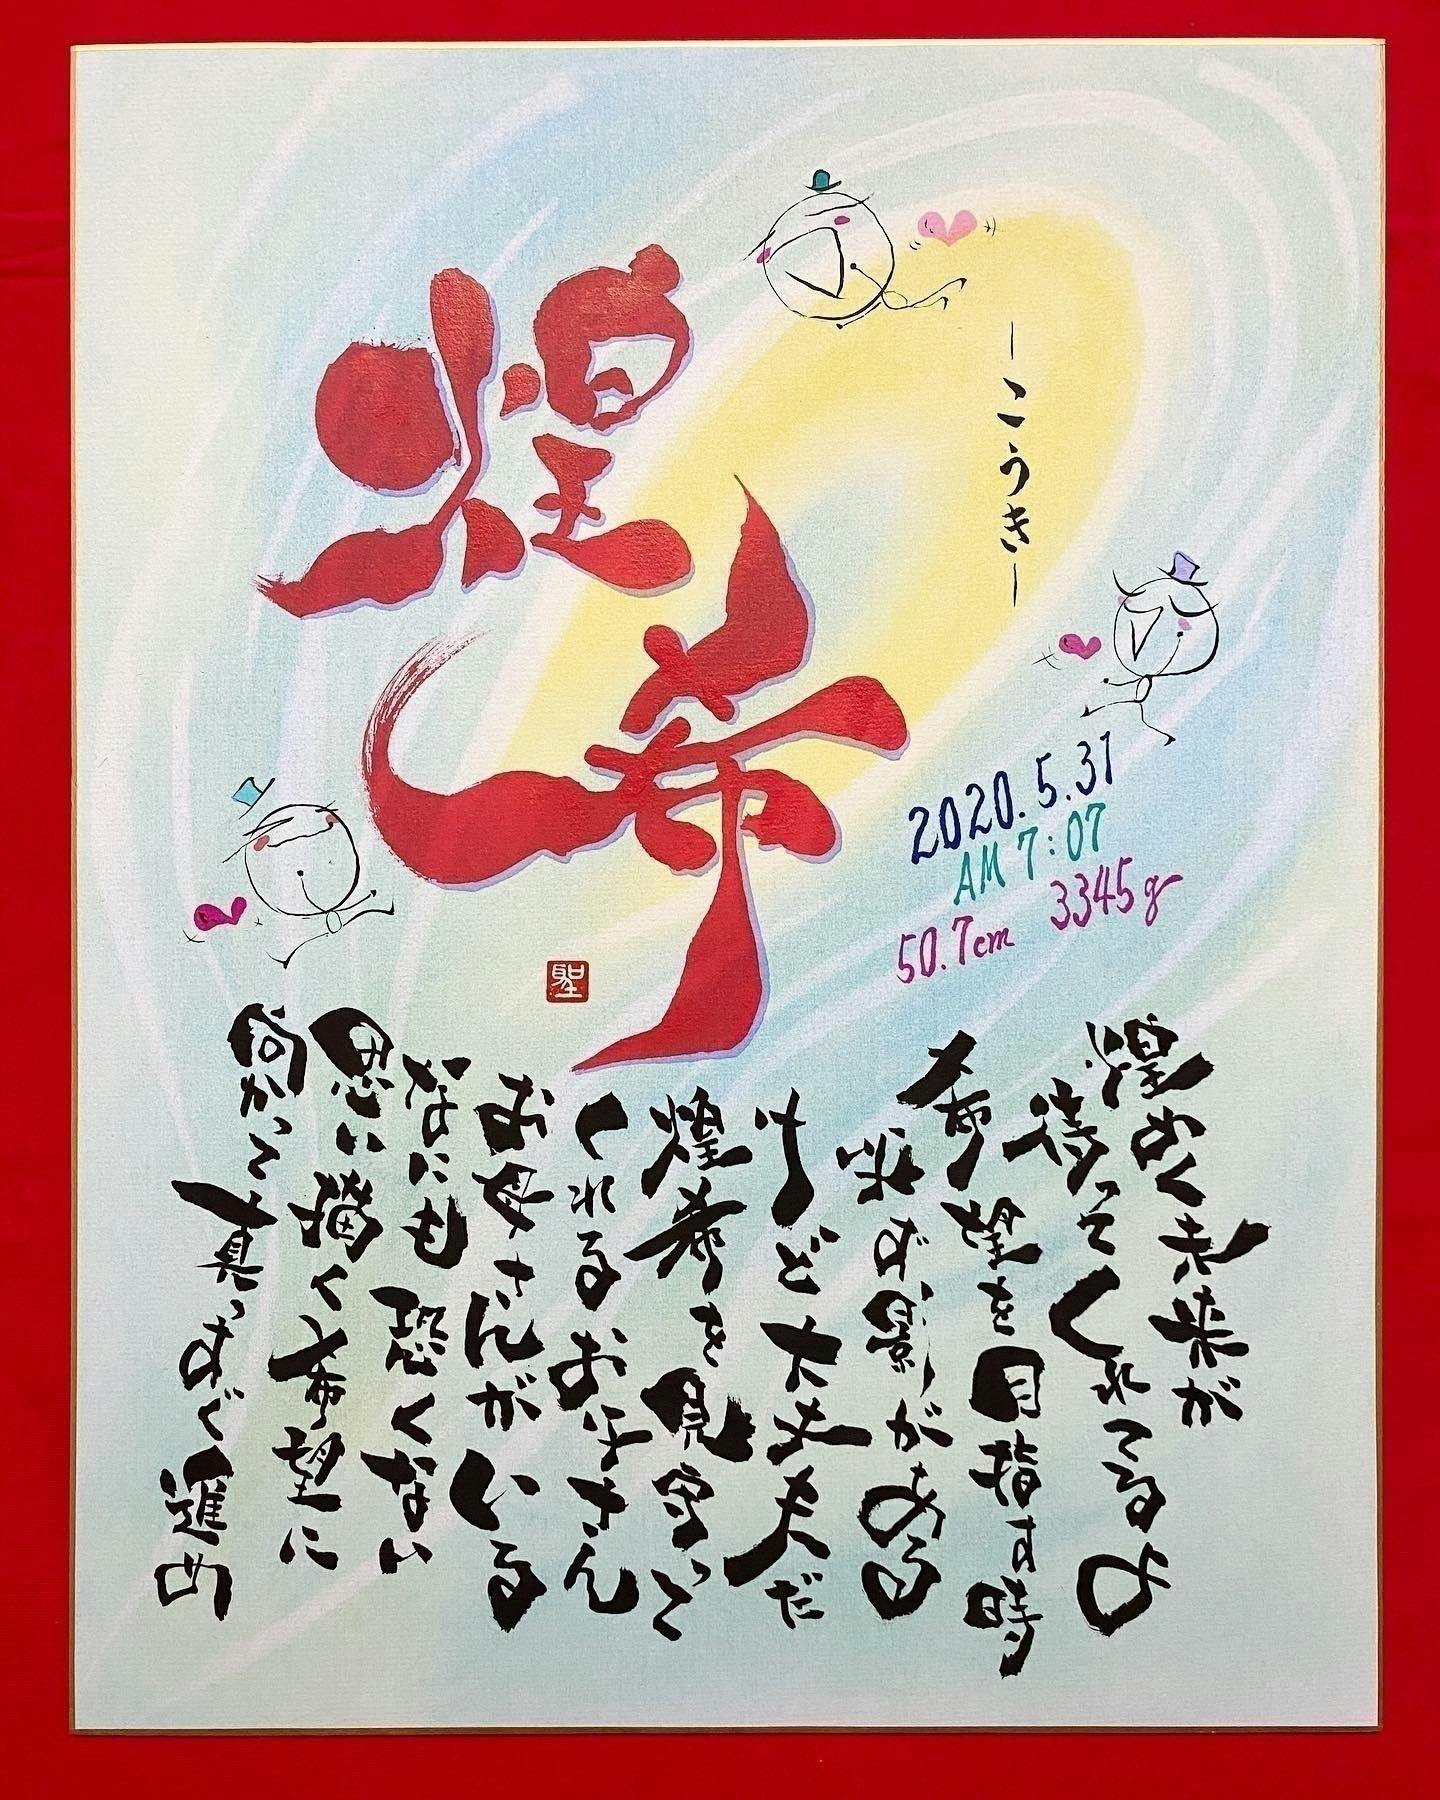 煌希
−こうき−
2020.5.31
AM 7:07
50.7cm 3345g
聖
煌めく未来が
待ってくれてるよ
希望を目指す時
必ず影がある
けど大丈夫だ
煌希を見守って
くれるお父さん
お母さんがいる
なにも恐くない
思い描く希望に
向かって真っすぐ進め